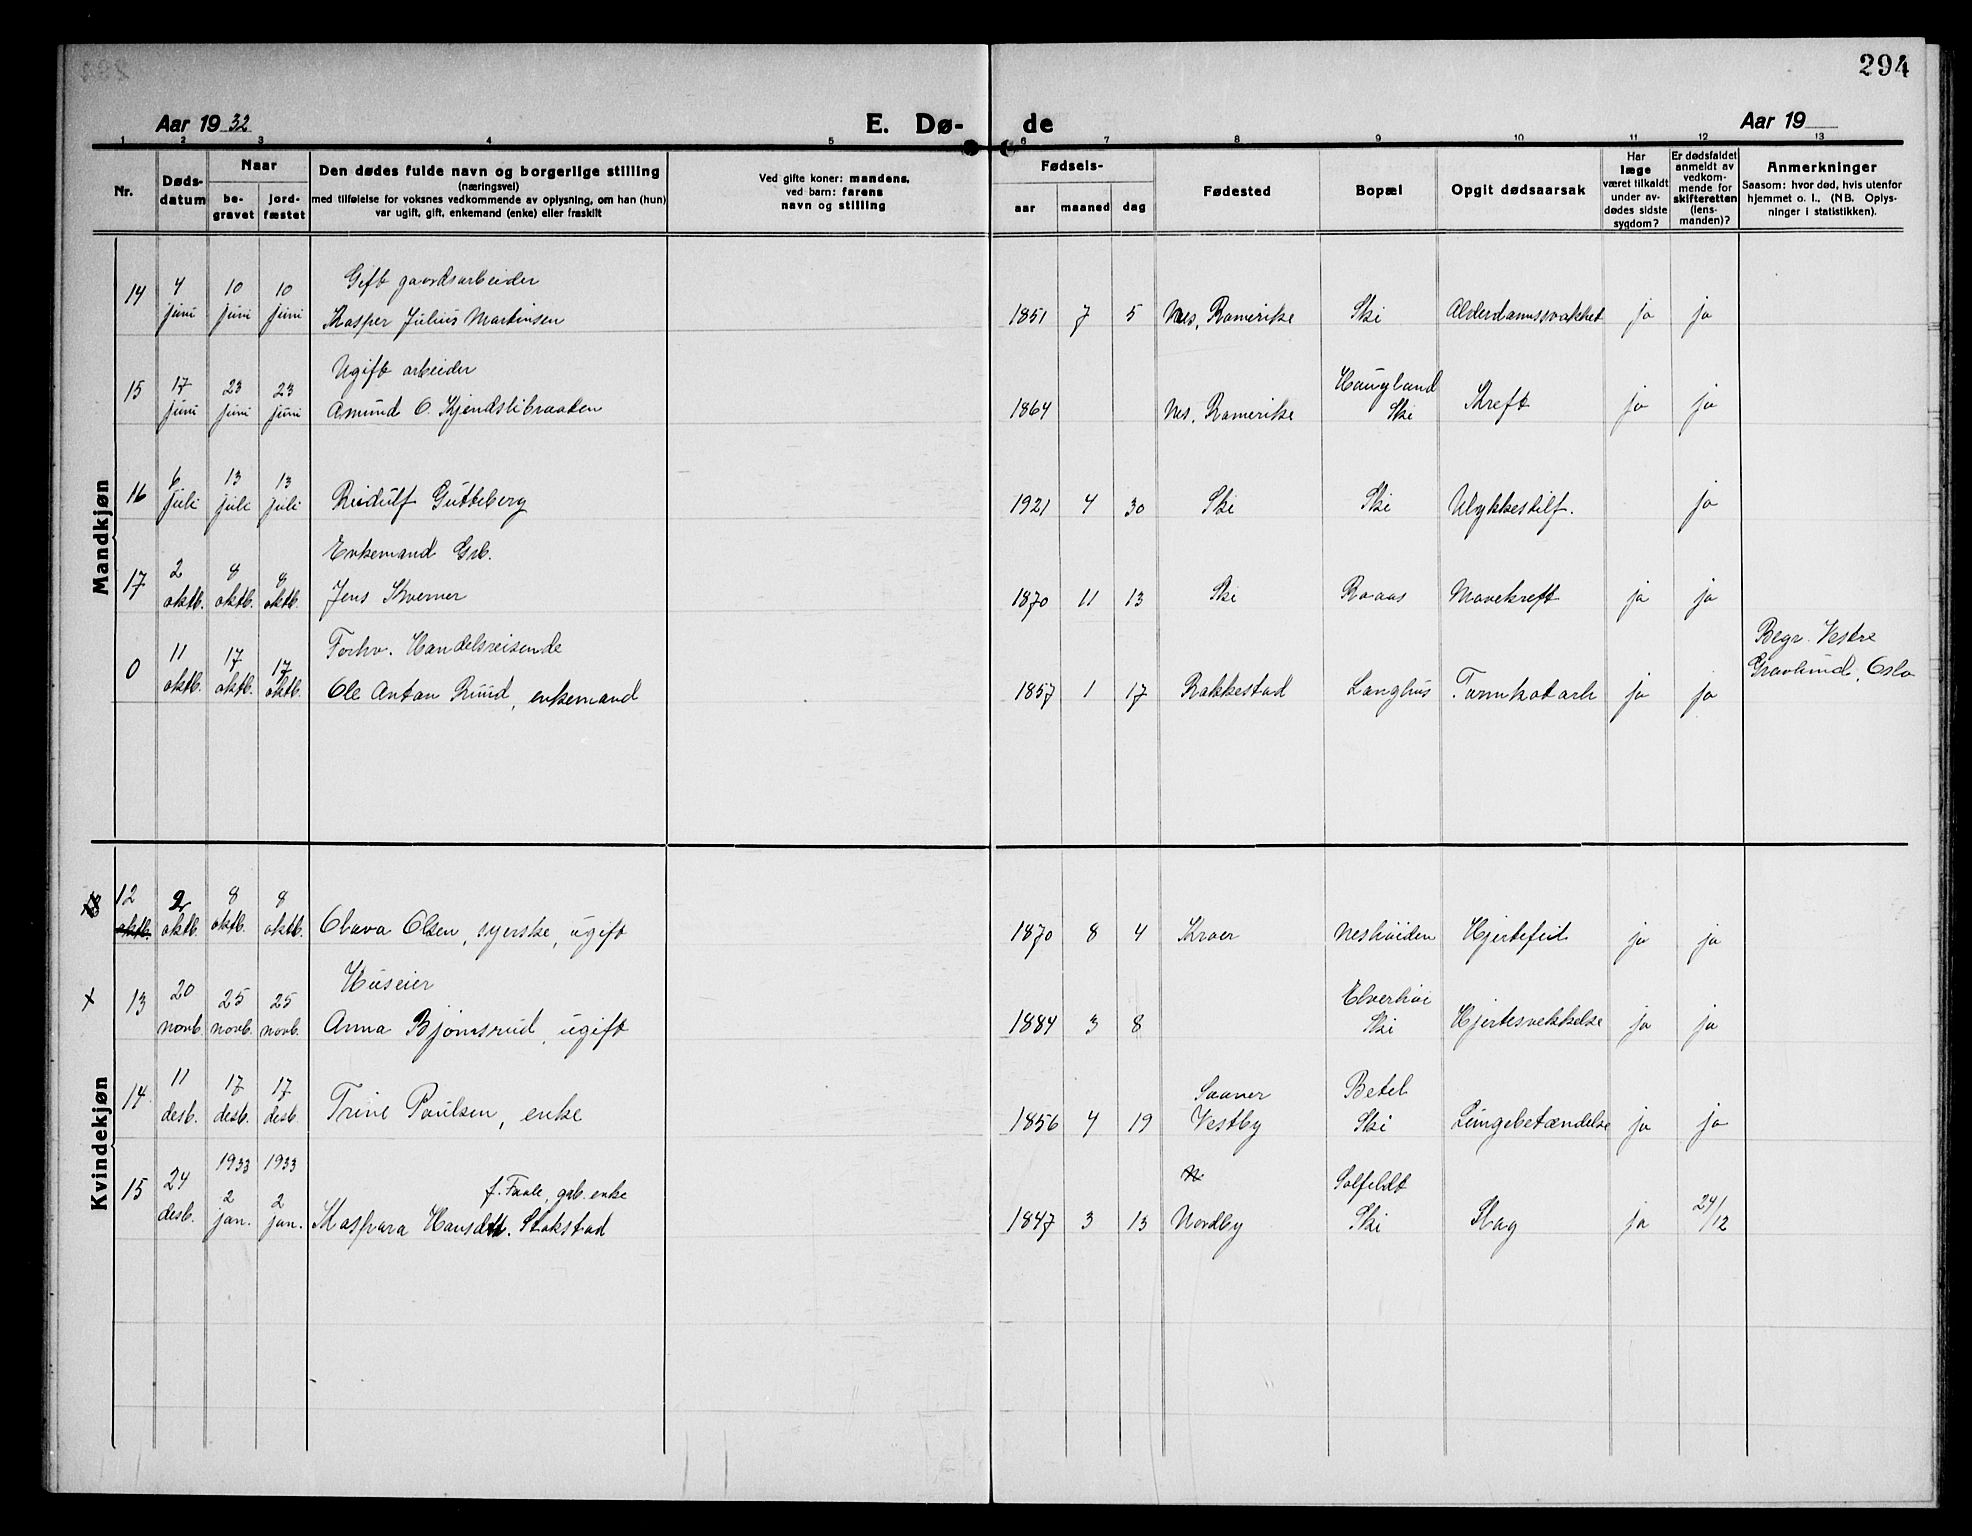 294
Aar 19 32
E. Dø-
de
Aar 19
1 2 3 4 5 6 7 8 9 10 11 12 13
Nr.
Døds-
datum
Naar
be-
gravet
jord-
fæstet
Den dødes fulde navn og borgerlige stilling
(næringsvei)
med tilføielse for voksnes vedkommende av oplysning, om han (hun)
var ugift, gift, enkemand (enke) eller fraskilt
Ved gifte koner: mandens,
ved barn: farens
navn og stilling
Fødsels-
aar maaned dag
Fødested
Bopæl
Opgit dødsaarsak
Har
læge
været tilkaldt
under av-
dødes sidste
sygdom?
Er dødsfaldet
anmeldt av
vedkom-
mende for
skifteretten
(lens-
manden)?
Anmerkninger
Saasom: hvor død, hvis utenfor
hjemmet o. l.. (NB. Oplys-
ninger i statistikken).
Mandkjøn
Gift gaardsarbeider
14 4 juni 10 juni 10 juni Kasper Julius Martinsen 1851 7 5 Nes, Romerike Ski Alderdomssvakhet ja ja
Ugift arbeider Haugland
15 17 juni 23 juni 23 juni Amund O. Kjendslibraaten 1864 Nes, Romerike Ski Kreft ja ja
16 6 juli 13 juli 13 juli Reidulf Gutteberg 1921 4 30 Ski Ski Ulykkestilf. ja
Enkemand Grb.
17 2 oktb. 8 oktb. 8 oktb. Jens Kverner 1870 11 13 Ski Roaas Mavekreft ja ja
Forhv. Handelsreisende Begr. Vestre
0 11 oktb. 17 oktb. 17 oktb. Ole Anton Ruud, enkemand 1857 1 17 Rakkestad Langhus Tarmkatarh ja ja Gravlund, Oslo
Kvindekjøn
12 oktb. 2 oktb. 8 oktb. 8 oktb. Olava Olsen, syerske, ugift 1870 8 4 Kroer Neshöiden Hjertefeil ja ja
Huseier Elverhöi
x 13 20 novb. 25 novb. 25 novb. Anna Bjørnsrud, ugift 1884 3 8 Ski Hjertesvekkelse ja ja
Saaner Betel
14 11 desb. 17 desb. 17 desb. Trine Paulsen, enke 1856 4 19 Vestby Ski Lungebetændelse ja ja
1933 1933 N Solfeldt
f. Faale, grb. enke
15 24 desb. 2 jan. 2 jan. Kaspara Hansdtt. Stokstad 1847 3 13 Nordby Ski Slag ja 24/12